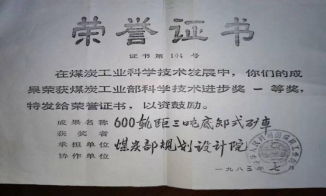 荣誉证书
证书第104号
在煤炭工业科学技术发展中，你们的成
果荣获煤炭工业部科学技术进步奖一等奖，
特发给荣誉证书，以资鼓励。
成果名称 600轨距三吨底卸式列车
获奖者
承担单位 煤炭部规划设计院
协作单位
一九八三年七月